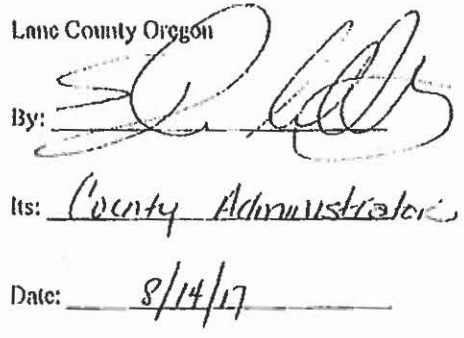 Lane County Oregon
By:
Its: County Administrator
Date: 8/14/17